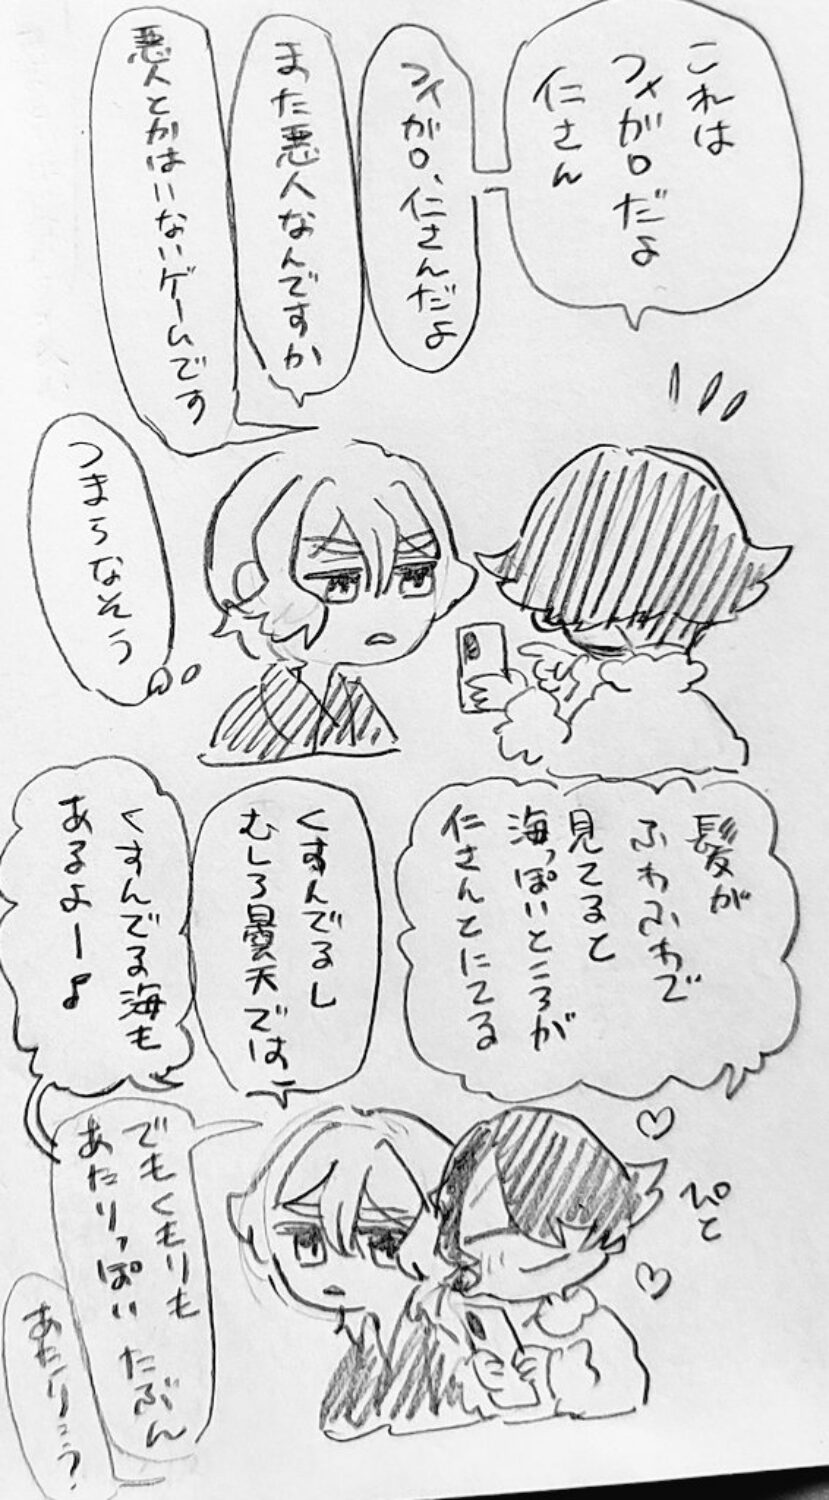 これは
フィガロだよ
仁さん
フィガロ、仁さんだよ
また悪人なんですか
悪人とかはいないゲームです
つまらなそう
髪が
ふわふわで
見てると
海っぽいところが
仁さんとにてる
くすんでるし
むしろ曇天では
くすんでる海も
あるよーよ
ぴと
でもくもりも
あたりっぽい たぶん
あたり…?